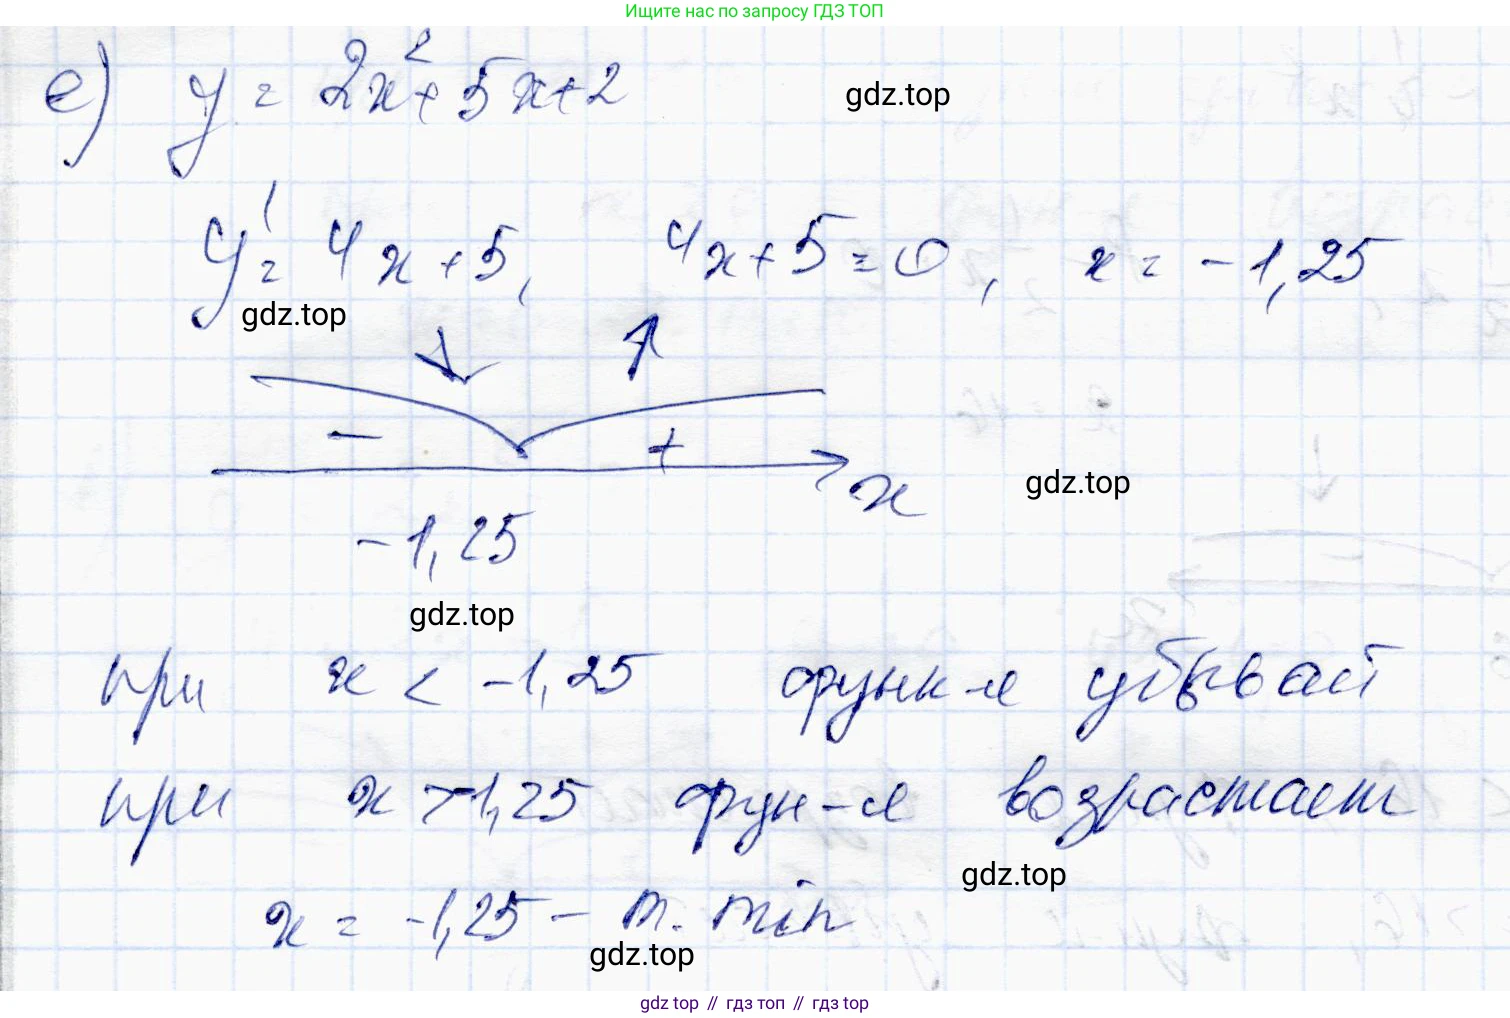 Ищите нас по запросу ГДЗ ТОП
е) y = 2x² + 5x + 2
gdz.top
y' = 4x + 5, 4x + 5 = 0, x = -1,25
gdz.top
- +
x
gdz.top
-1,25
gdz.top
при x < -1,25 функ-я убывает
при x > -1,25 фун-я возрастает
gdz.top
x = -1,25 - т. min
gdz.top
gdz top // гдз топ // гдз top